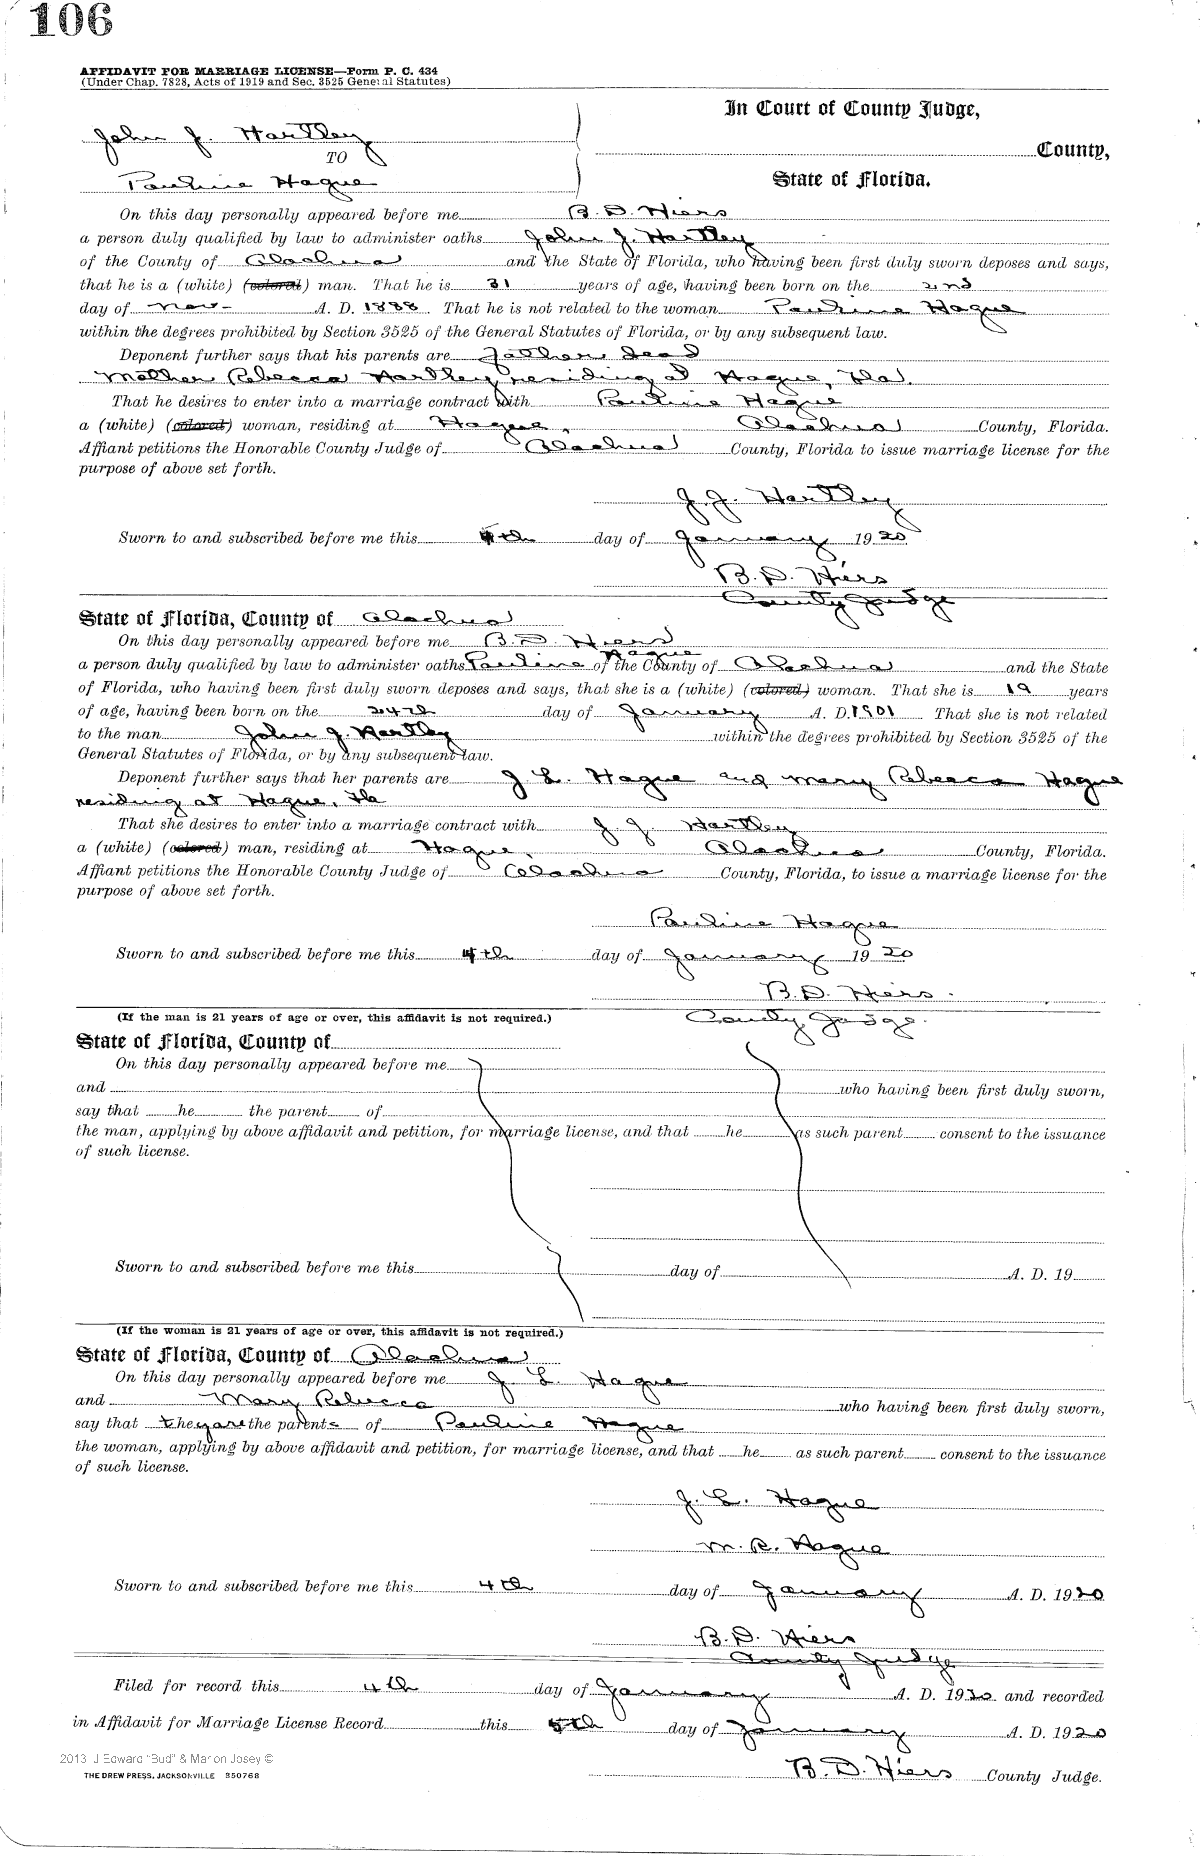 106
AFFIDAVIT FOR MARRIAGE LICENSE—Form P. C. 434
(Under Chap. 7828, Acts of 1919 and Sec. 3525 General Statutes)
In Court of County Judge,
John J. Hartley
County,
TO
Pauline Hague
State of Florida.
On this day personally appeared before me B. D. Hiers
a person duly qualified by law to administer oaths John J. Hartley
of the County of Alachua and the State of Florida, who having been first duly sworn deposes and says,
that he is a (white) (colored) man. That he is 31 years of age, having been born on the 2nd
day of Nov- A. D. 1888 That he is not related to the woman Pauline Hague
within the degrees prohibited by Section 3525 of the General Statutes of Florida, or by any subsequent law.
Deponent further says that his parents are Father dead
Mother Rebecca Hartley residing at Hague, Fla.
That he desires to enter into a marriage contract with Pauline Hague
a (white) (colored) woman, residing at Hague, Alachua County, Florida.
Affiant petitions the Honorable County Judge of Alachua County, Florida to issue marriage license for the
purpose of above set forth.
J. J. Hartley
Sworn to and subscribed before me this 4th day of January 1920
B. D. Hiers
County Judge
State of Florida, County of Alachua
On this day personally appeared before me B. D. Hiers
a person duly qualified by law to administer oaths Pauline Hague of the County of Alachua and the State
of Florida, who having been first duly sworn deposes and says, that she is a (white) (colored) woman. That she is 19 years
of age, having been born on the 24th day of January A. D. 1901 That she is not related
to the man John J. Hartley within the degrees prohibited by Section 3525 of the
General Statutes of Florida, or by any subsequent law.
Deponent further says that her parents are J L. Hague and Mary Rebecca Hague
residing at Hague, Fla
That she desires to enter into a marriage contract with J J Hartley
a (white) (colored) man, residing at Hague, Alachua County, Florida.
Affiant petitions the Honorable County Judge of Alachua County, Florida, to issue a marriage license for the
purpose of above set forth.
Pauline Hague
Sworn to and subscribed before me this 4th day of January 1920
B. D. Hiers.
County Judge.
(If the man is 21 years of age or over, this affidavit is not required.)
State of Florida, County of
On this day personally appeared before me
and who having been first duly sworn,
say that he the parent of
the man, applying by above affidavit and petition, for marriage license, and that he as such parent consent to the issuance
of such license.
Sworn to and subscribed before me this day of A. D. 19
(If the woman is 21 years of age or over, this affidavit is not required.)
State of Florida, County of Alachua
On this day personally appeared before me J L. Hague
and Mary Rebecca who having been first duly sworn,
say that they are the parents of Pauline Hague
the woman, applying by above affidavit and petition, for marriage license, and that he as such parent consent to the issuance
of such license.
J. L. Hague
M. R. Hague
Sworn to and subscribed before me this 4th day of January A. D. 1920
B. D. Hiers
County Judge
Filed for record this 4th day of January A. D. 1920 and recorded
in Affidavit for Marriage License Record this 5th day of January A. D. 1920
2013 J Edward "Bud" & Marion Josey ©
B. D. Hiers County Judge.
THE DREW PRESS, JACKSONVILLE B50768